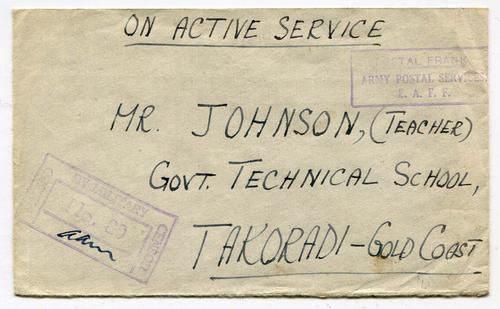 ON ACTIVE SERVICE
POSTAL FRANK
ARMY POSTAL SERVICES
E. A. F. F.
MR. JOHNSON, (TEACHER)
GOVT. TECHNICAL SCHOOL,
TAKORADI - GOLD COAST
BY MILITARY
CENSOR